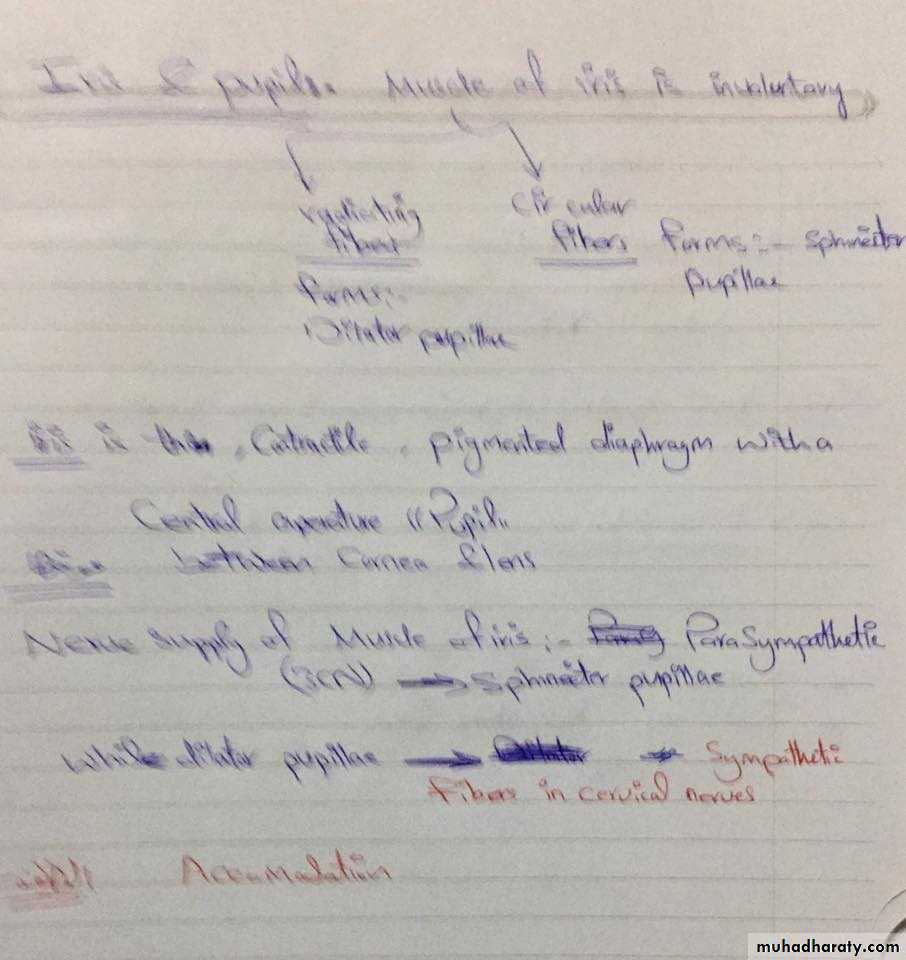 Iris & pupil :- Muscle of iris is involuntary
radiating
fibers
forms :-
Dilator pupillae
Circular
fibers forms :- Sphinecter
pupillae
is thin, Contractile, pigmented diaphragm with a
Central aperature "Pupil"
between Cornea & lens
Nerve supply of Muscle of iris :- ParaSympathetic
(3CN) → Sphinecter pupillae
While dilator pupillae → → Sympathetic
fibers in cervical nerves
Accomadation
muhadharaty.com